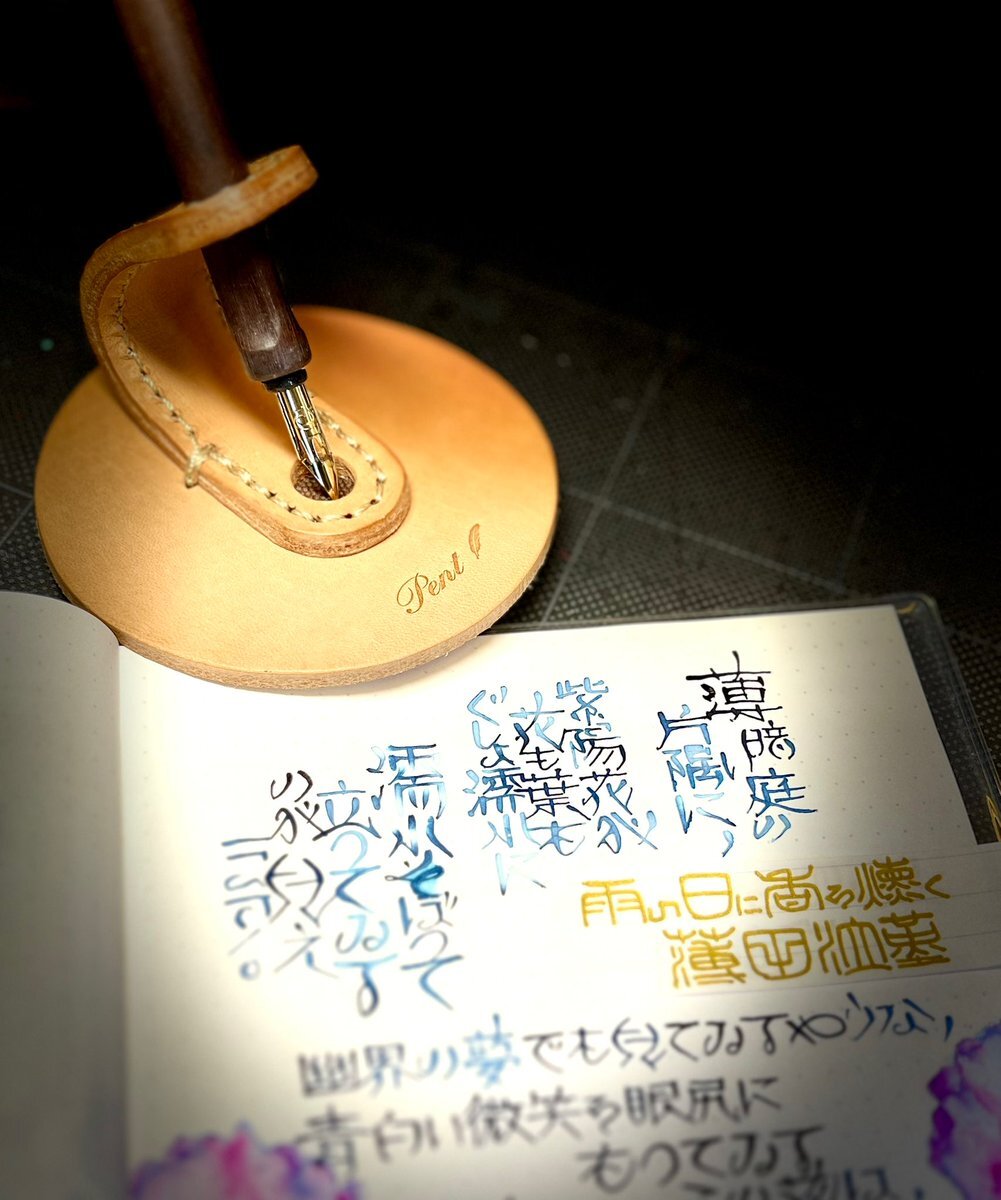 Pent
薄暗い庭の
片隅に、
紫陽花が
花も葉も
ぐしょ濡れに
濡れそぼつて
立つてゐる
のが見え
雨の日に香を燻く
薄田泣菫
幽界の夢でも見てゐるやうな、
青白い微笑を眼尻に
もつてゐる